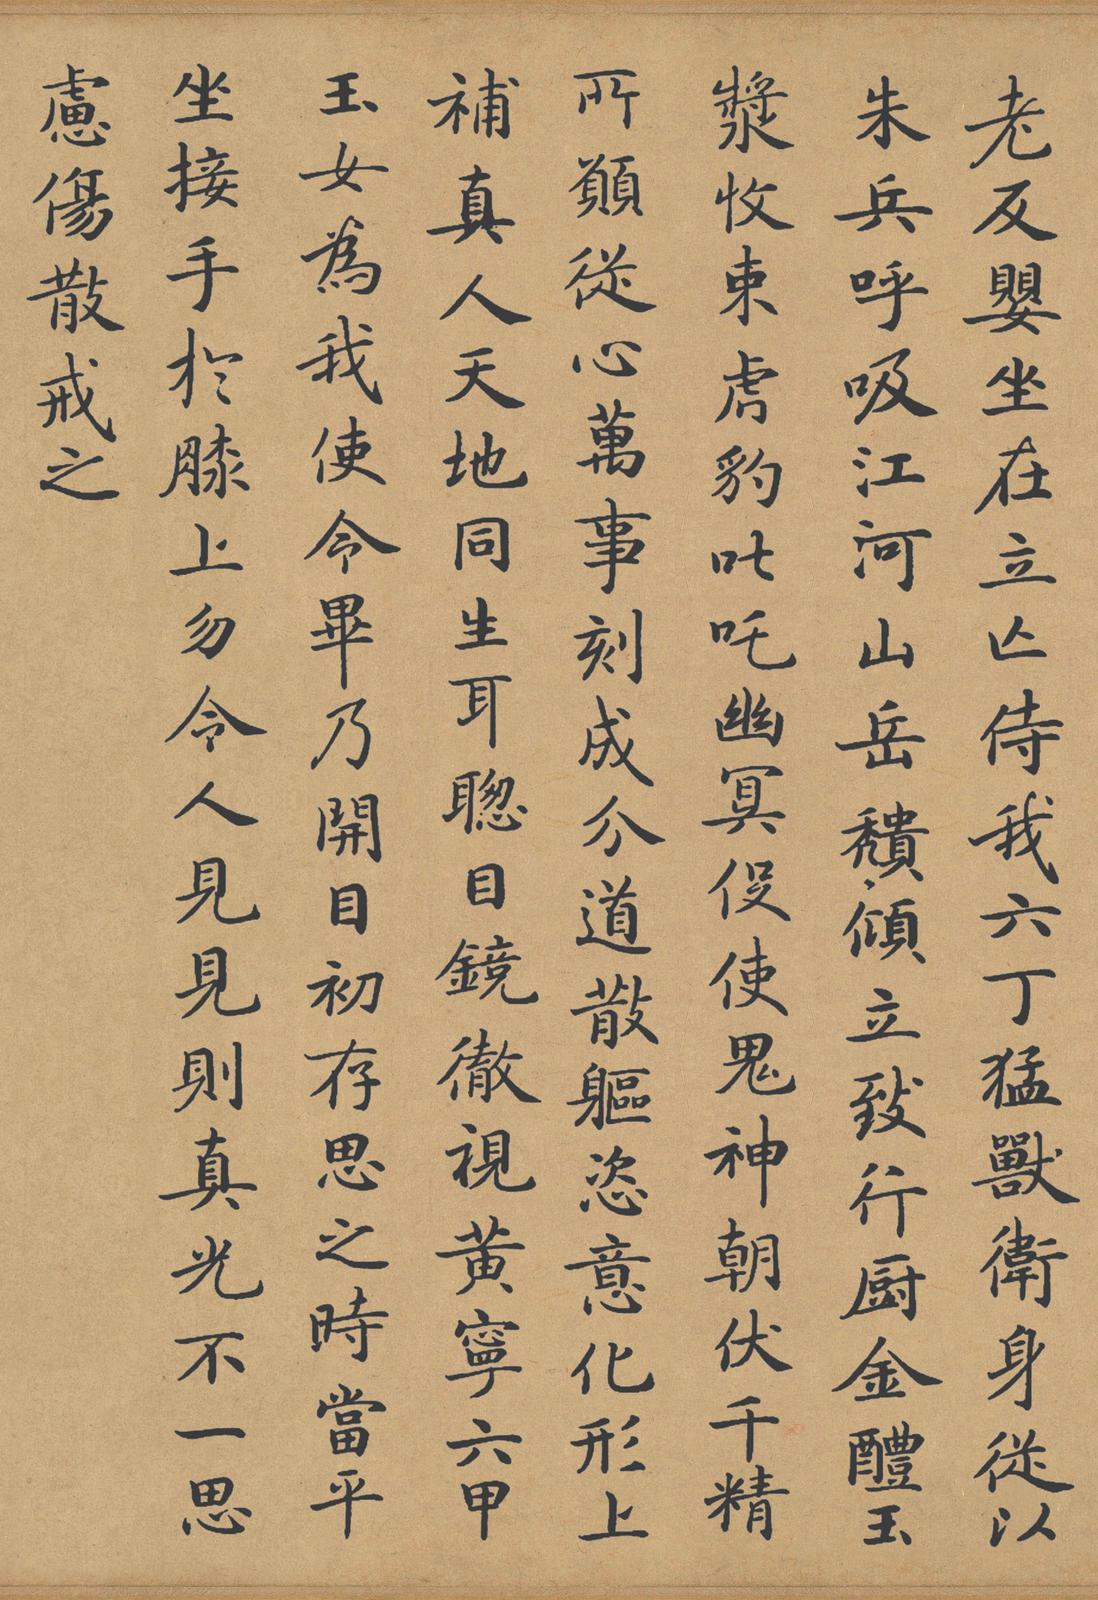 老反嬰坐在立亡侍我六丁猛獸衛身從以
朱兵呼吸江河山岳穨傾立致行厨金醴玉
漿收束虎豹叱吒幽冥役使鬼神朝伏千精
所願從心萬事剋成分道散軀恣意化形上
補真人天地同生耳聰目鏡徹視黃寧六甲
玉女為我使令畢乃開目初存思之時當平
坐接手於膝上勿令人見見則真光不一思
慮傷散戒之